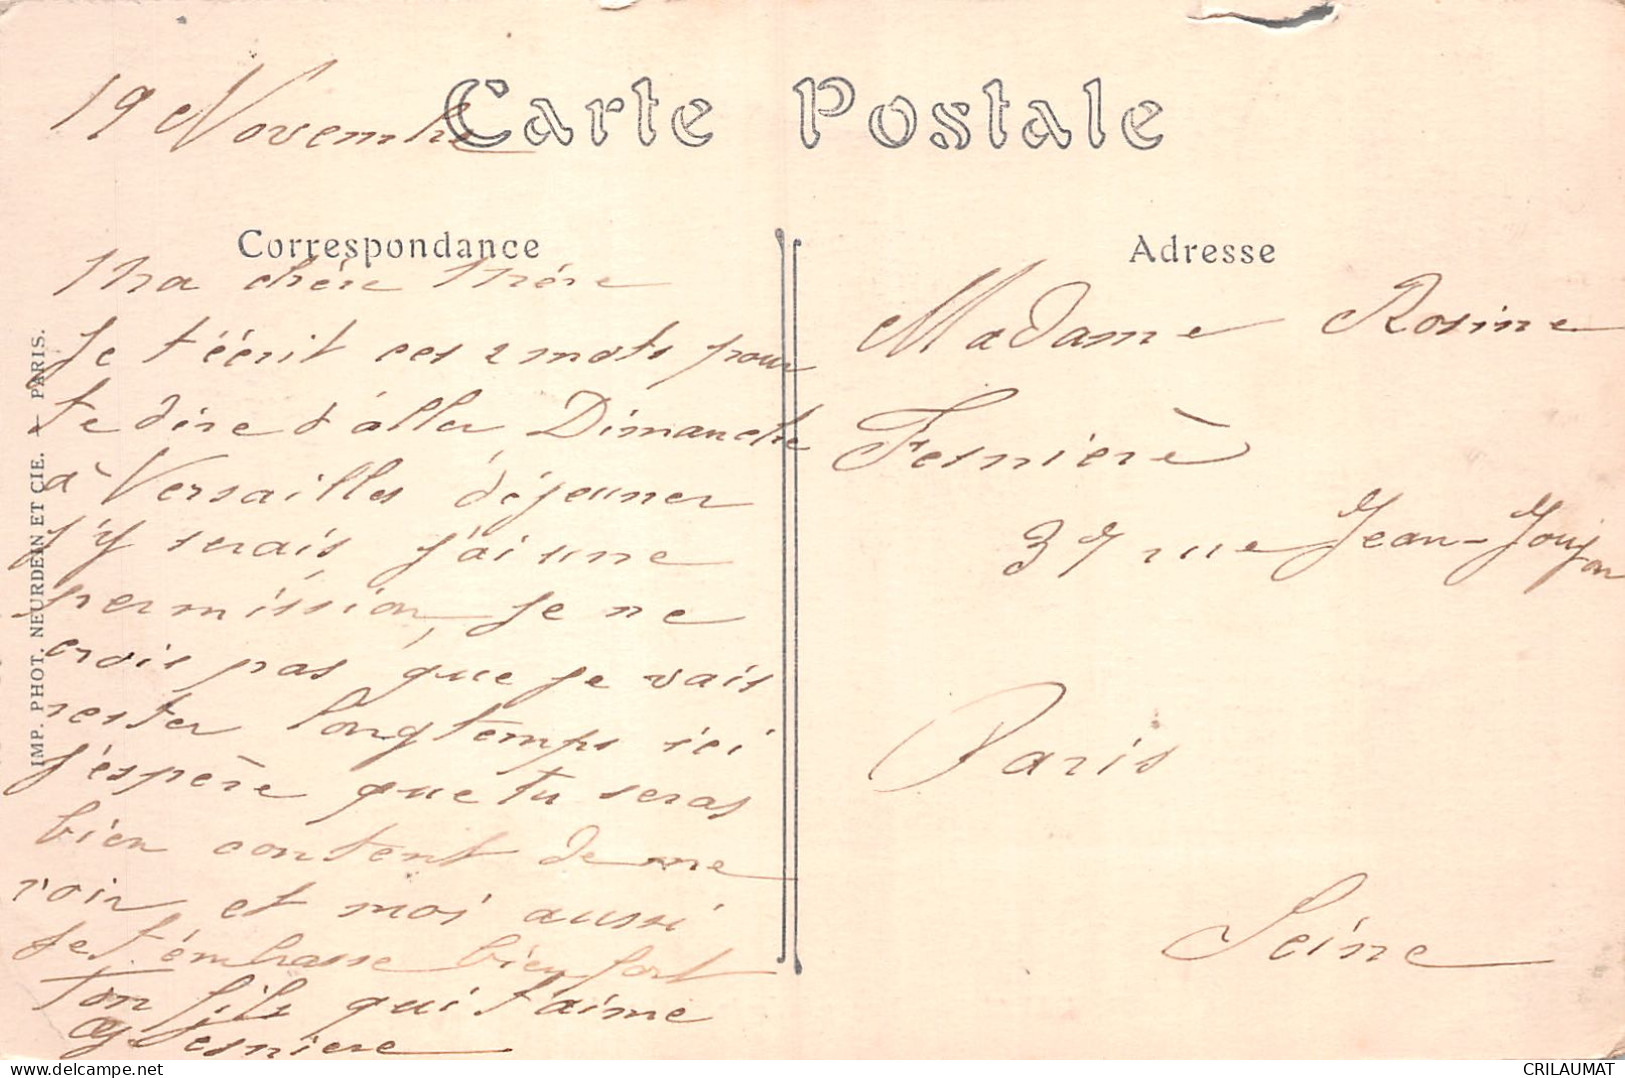 19 Novembre
Carte Postale
Correspondance
Ma chère Mère
Je t'écrit ces 2 mots pour
te dire d'aller Dimanche
à Versailles déjeuner
j'y serais, j'ai une
permission, je ne
crois pas que je vais
rester longtemps ici
j'espère que tu seras
bien content de me
voir et moi aussi
je t'embrasse bien fort
ton fils qui t'aime
Fesniere
Adresse
Madame Rosine
Fesnierè
37 rue Jean-Joujon
Paris
Seine
IMP. PHOT. NEURDEIN ET CIE. — PARIS.
delcampe.net
CRILAUMAT